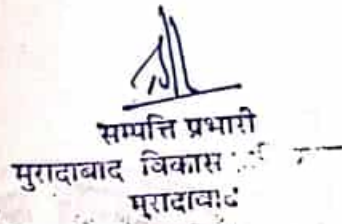 सम्पत्ति प्रभारी
मुरादाबाद विकास
मुरादाबाद